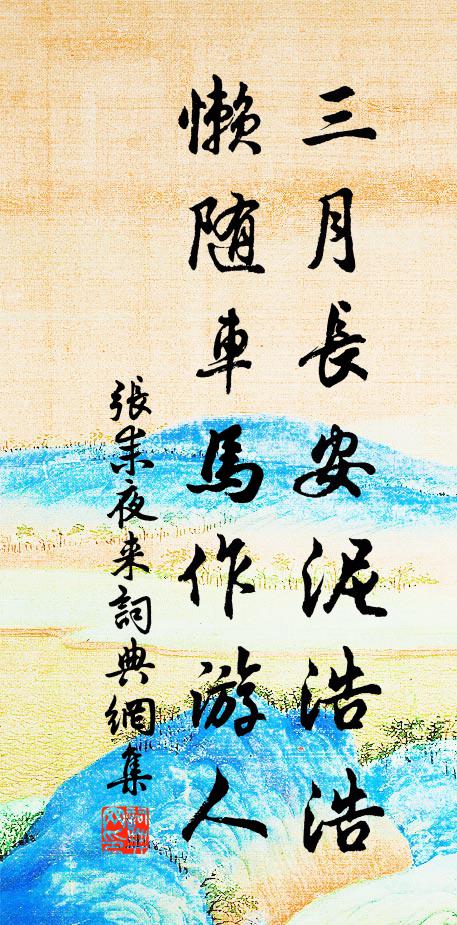 三月長安泥浩浩
懶随車馬作游人
張耒夜来詞典網集